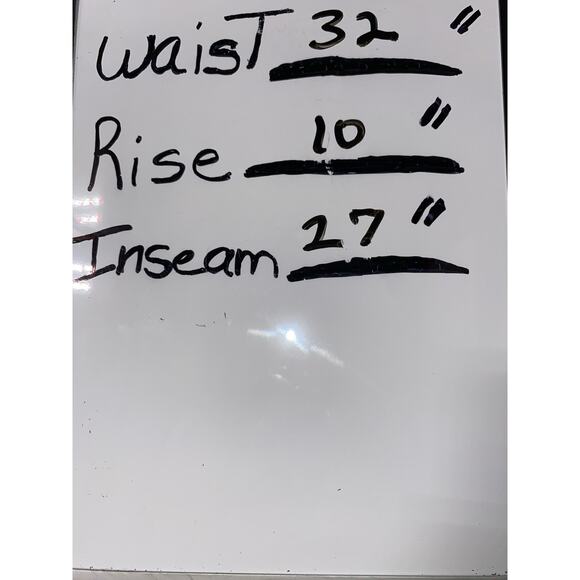 Waist 32 "
Rise 10 "
Inseam 27 "